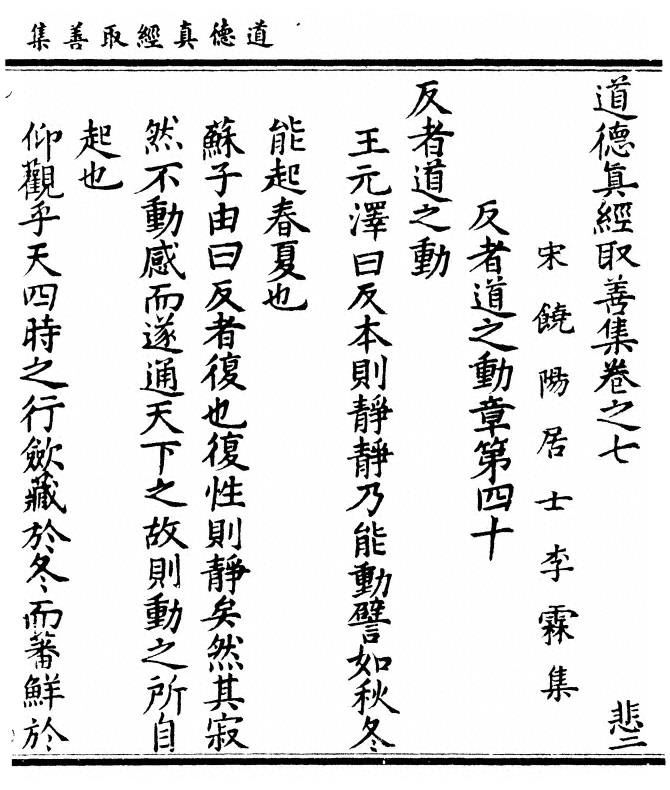 道德真經取善集
道德眞經取善集卷之七 悲二
宋饒陽居士李霖集
反者道之動章第四十
反者道之動
王元澤曰反本則靜靜乃能動譬如秋冬
能起春夏也
蘇子由曰反者復也復性則靜矣然其寂
然不動感而遂通天下之故則動之所自
起也
仰觀乎天四時之行斂藏於冬而蕃鮮於